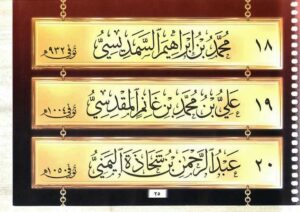 ١٨ محمد بن إبراهيم السمديسي توفي ٩٣٢هـ
١٩ علي بن محمد بن غانم المقدسي توفي ١٠٠٤هـ
٢٠ عبد الرحمن بن شحاذة اليمني توفي ١٠٥٠هـ
٢٥